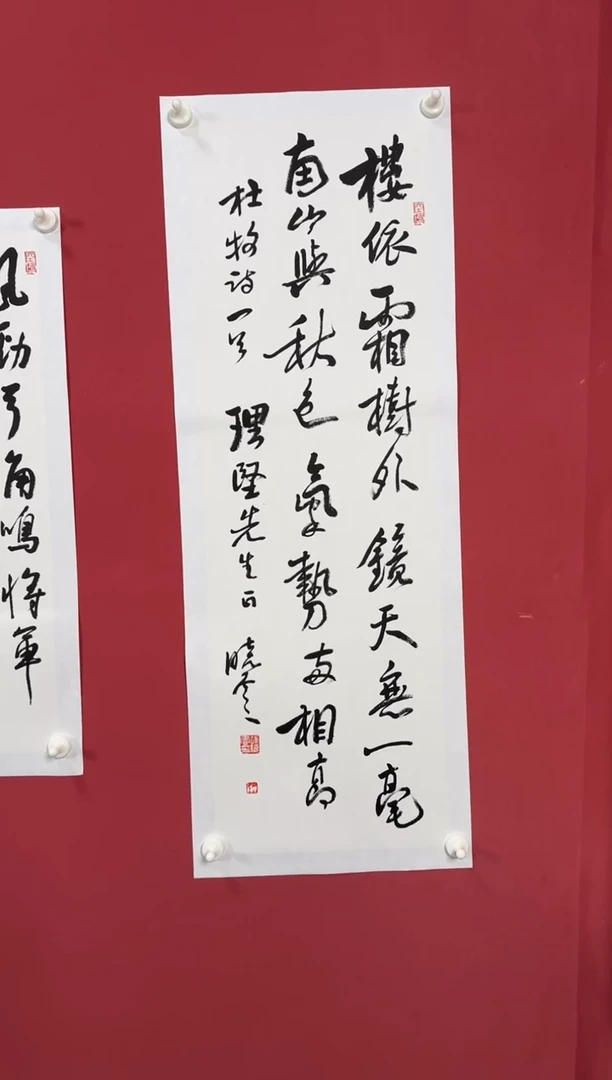 樓依霜樹外鏡天無一毫
南山與秋色氣勢兩相高
杜牧詩一首 理堅先生正
風勁弓角鳴將軍